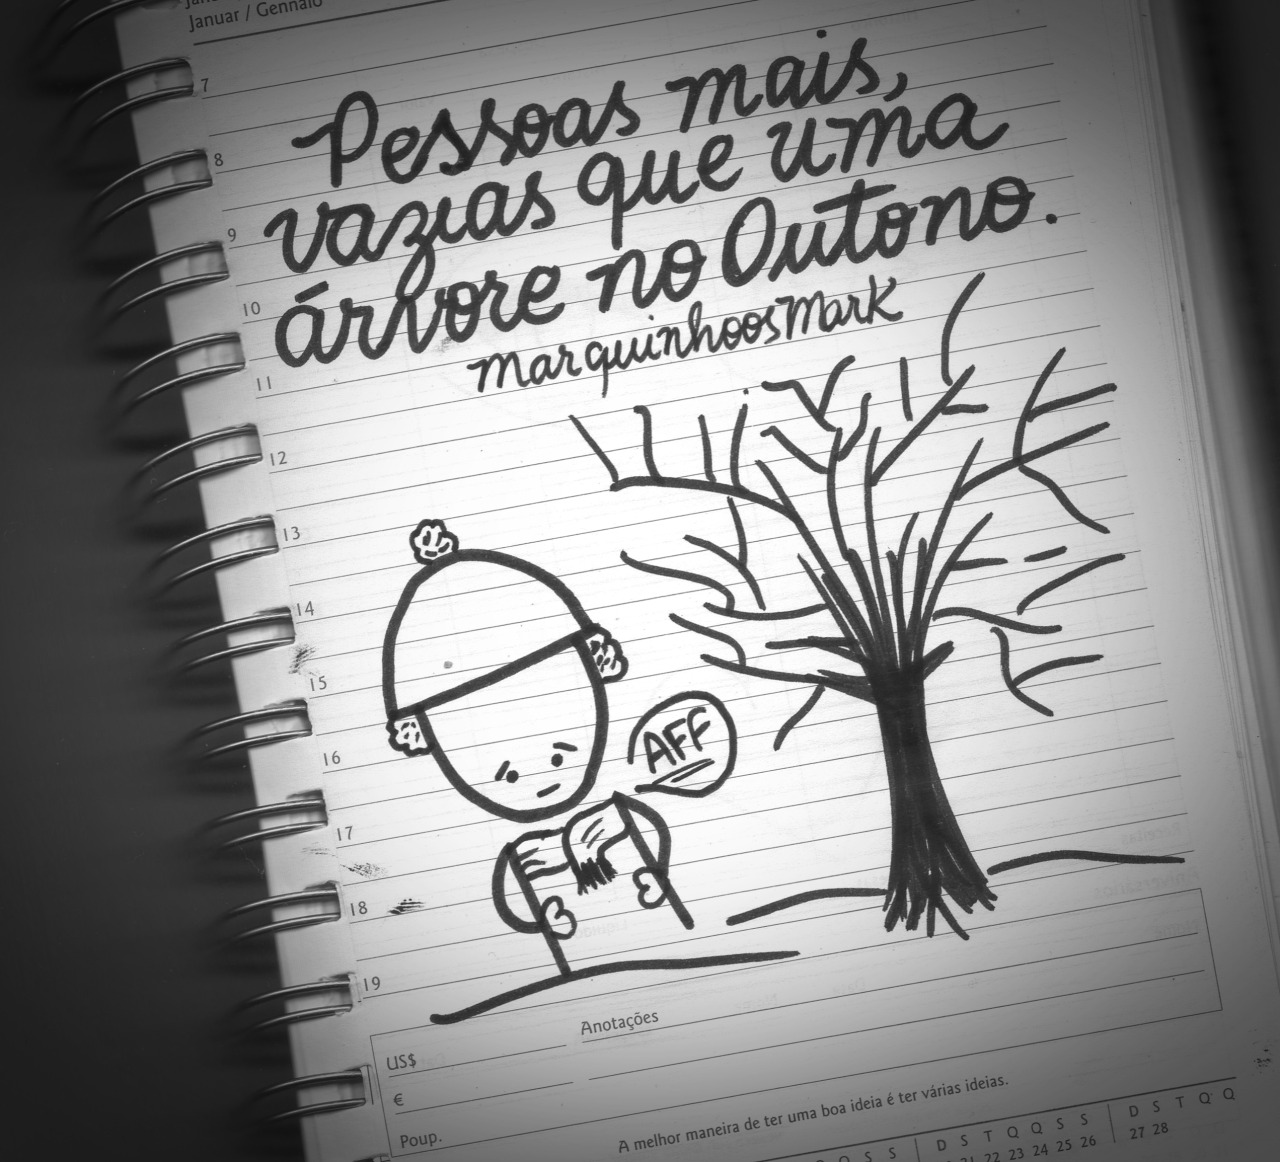 Januar / Gennaio
7
Pessoas mais,
8
vazias que uma
9
árvore no Outono.
10
marquinhoosMark
11
12
13
14
15
16
AFF
17
18
19
Anotações
US$
€
Poup.
A melhor maneira de ter uma boa ideia é ter várias ideias.
Q Q S S D S T Q Q S S D S T Q Q
22 23 24 25 26 27 28